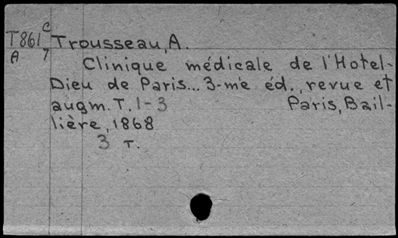 T861 c Trousseau, A.
A 7
Clinique médicale de l'Hotel-
Dieu de Paris... 3-me éd., revue et
augm. T. 1-3 Paris, Bail-
lière, 1868
3 T.